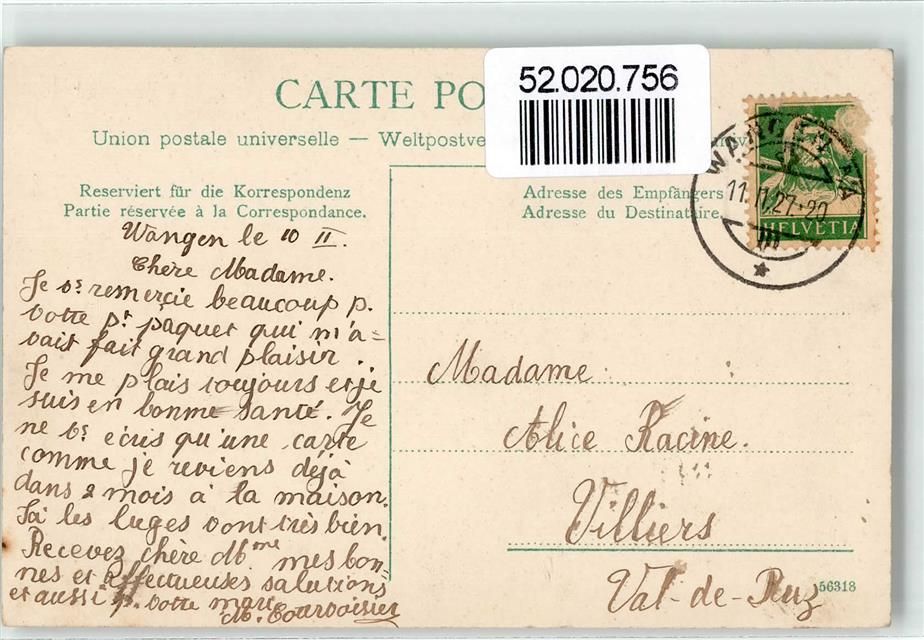 52.020.756
CARTE PO
Union postale universelle — Weltpostve
Reserviert für die Korrespondenz
Partie réservée à la Correspondance.
Adresse des Empfängers
Adresse du Destinataire.
11.II.27-20
III
HELVETIA
Wangen le 10 II.
Chère Madame.
Je vs remercie beaucoup p.
votre pt paquet qui m'a-
vait fait grand plaisir.
Je me plais toujours et je
suis en bonne santé. Je
ne vs écris qu'une carte
comme je reviens déjà
dans 2 mois à la maison.
Ici les luges vont très bien.
Recevez chère Mme mes bon-
nes et affectueuses salutions
et aussi p. votre mari
M. Courvoisier
Madame
Alice Racine.
Villiers
Val-de-Ruz
56318